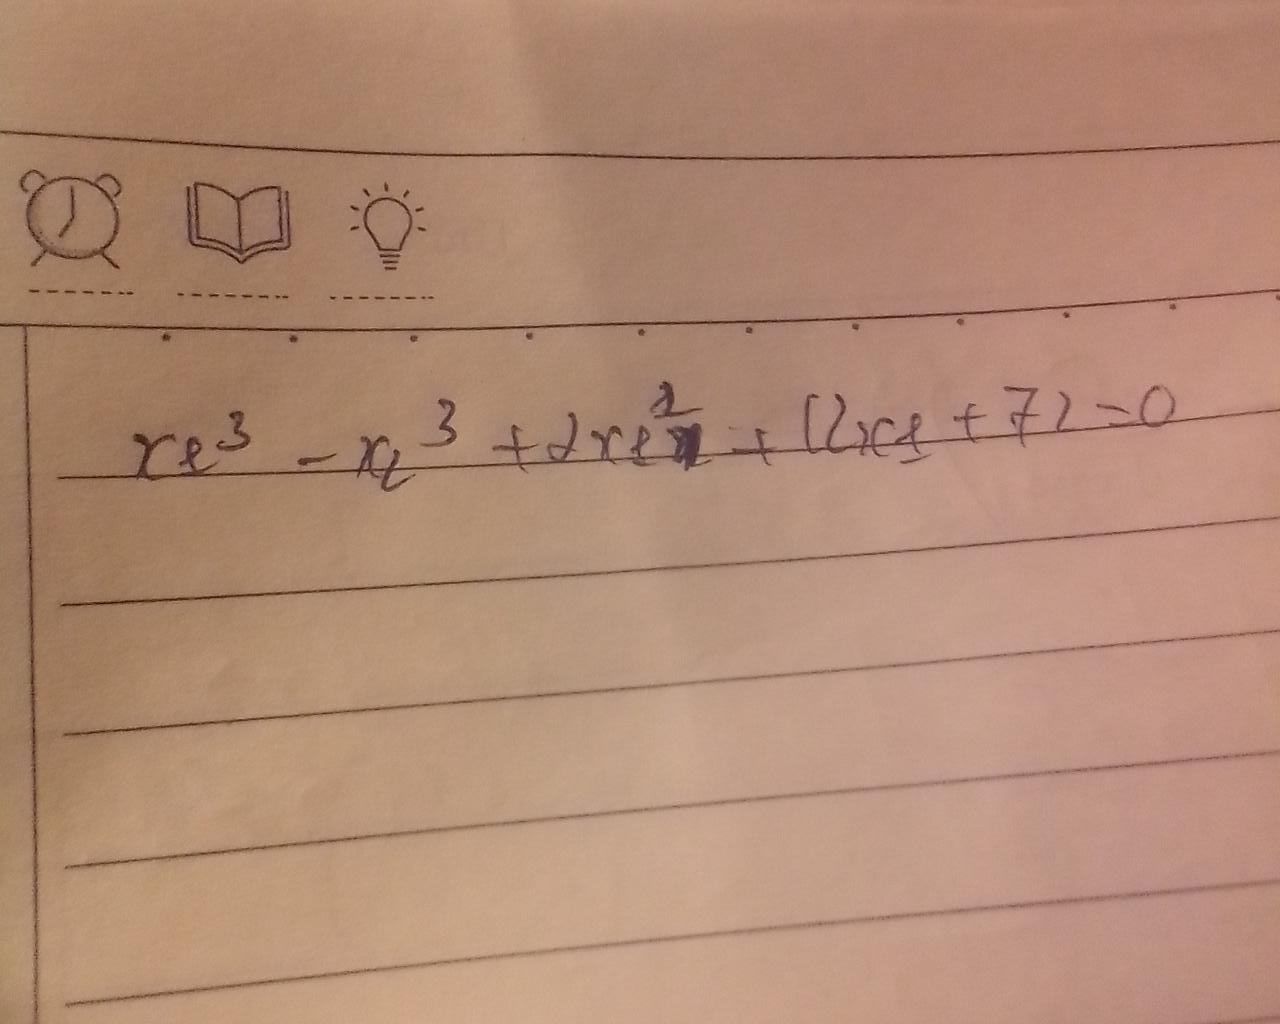 xe³ - x₂³ + 2xe² + 12xe + 72 = 0